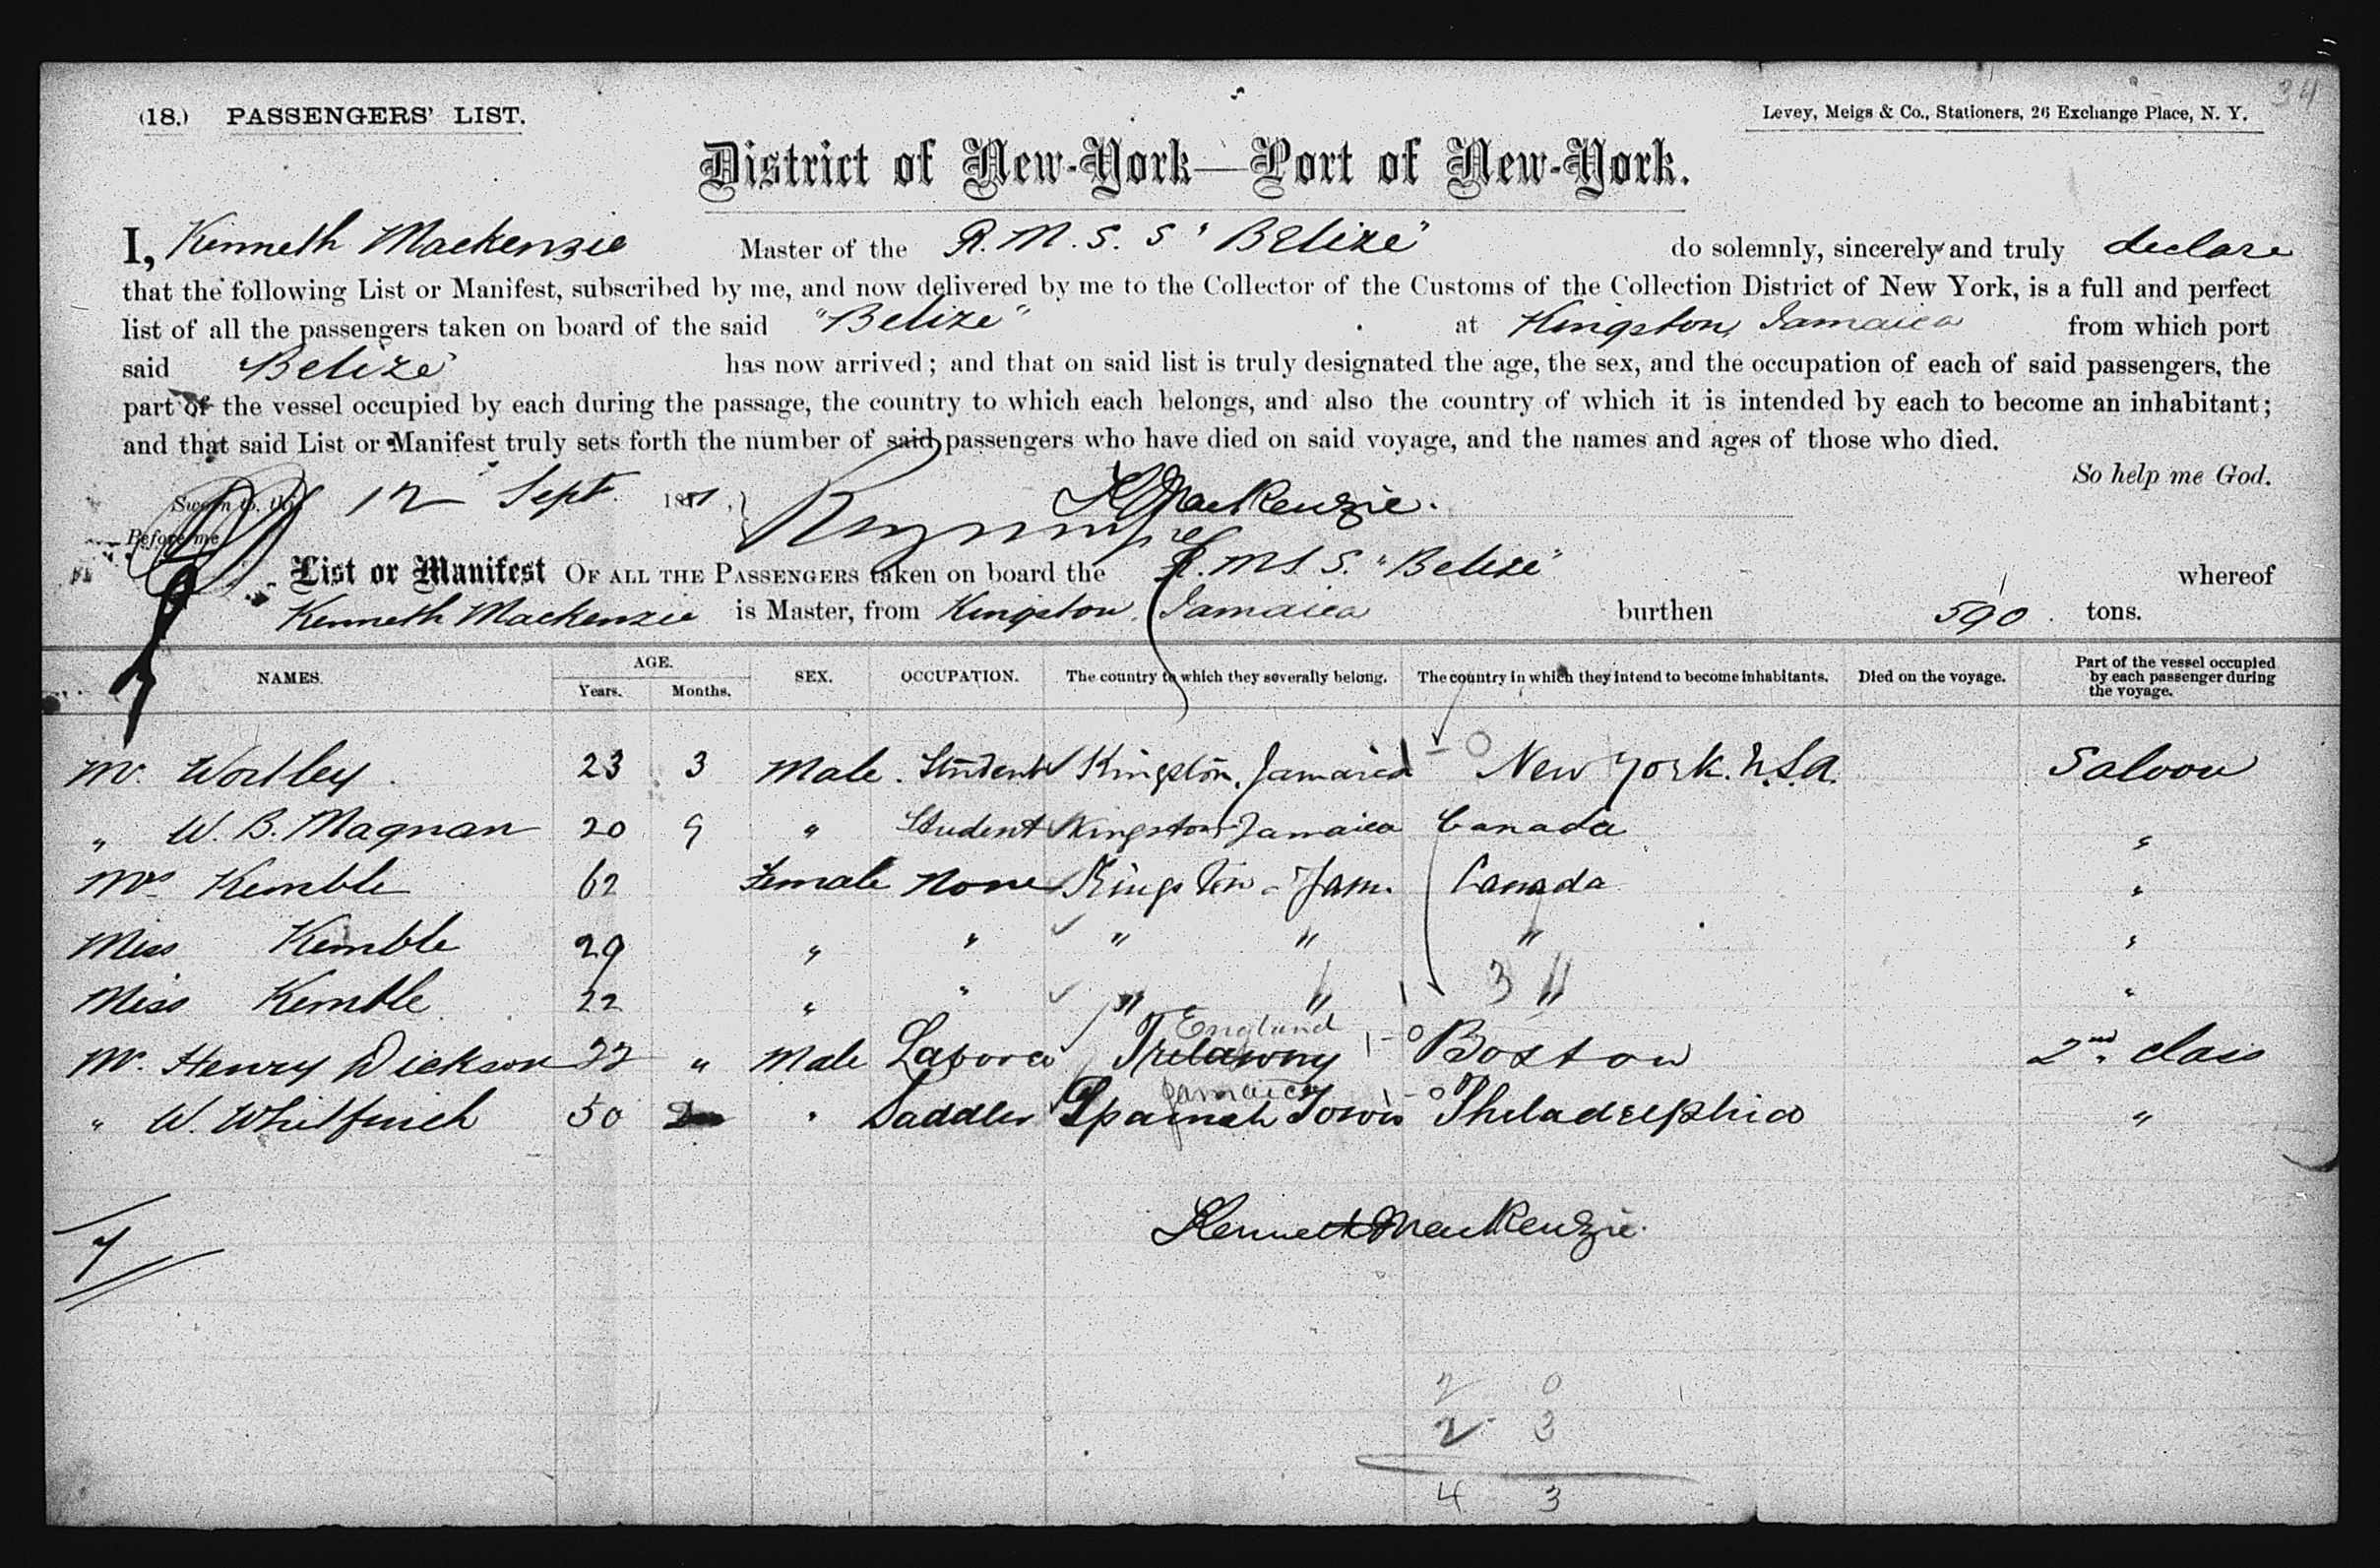 34
(18.) PASSENGERS' LIST.
Levey, Meigs & Co., Stationers, 26 Exchange Place, N. Y.
District of New-York—Port of New-York.
I, Kenneth Mackenzie Master of the R. M. S. S "Belize" do solemnly, sincerely and truly declare
that the following List or Manifest, subscribed by me, and now delivered by me to the Collector of the Customs of the Collection District of New York, is a full and perfect
list of all the passengers taken on board of the said "Belize" at Kingston, Jamaica from which port
said "Belize" has now arrived; and that on said list is truly designated the age, the sex, and the occupation of each of said passengers, the
part of the vessel occupied by each during the passage, the country to which each belongs, and also the country of which it is intended by each to become an inhabitant;
and that said List or Manifest truly sets forth the number of said passengers who have died on said voyage, and the names and ages of those who died.
So help me God.
Sworn to, this 12 Sept. 188 K Mackenzie.
Before me
List or Manifest OF ALL THE PASSENGERS taken on board the R. M S. S. "Belize" whereof
Kenneth Mackenzie is Master, from Kingston, Jamaica burthen 590 tons.
NAMES. AGE. Years. Months. SEX. OCCUPATION. The country to which they severally belong. The country in which they intend to become inhabitants. Died on the voyage. Part of the vessel occupied by each passenger during the voyage.
Mr. Wortley 23 3 Male. Student Kingston, Jamaica - 0 New York. U.S.A. Saloon
" W. B. Magnan 20 9 " Student Kingston Jamaica Canada "
Mrs Kemble 62 Female None Kingston - Jam. Canada "
Miss Kemble 29 " " " " " "
Miss Kemble 22 " " " " 3 " "
England
Mr. Henry Dickson 22 " Male Labora Trelawny 1-0 Boston 2nd. class
Jamaica
" W. Whitfinch 50 " Saddler Spanish Town 1-0 Philadelphia "
Kenneth Mackenzie.
7
2 0
2 3
4 3